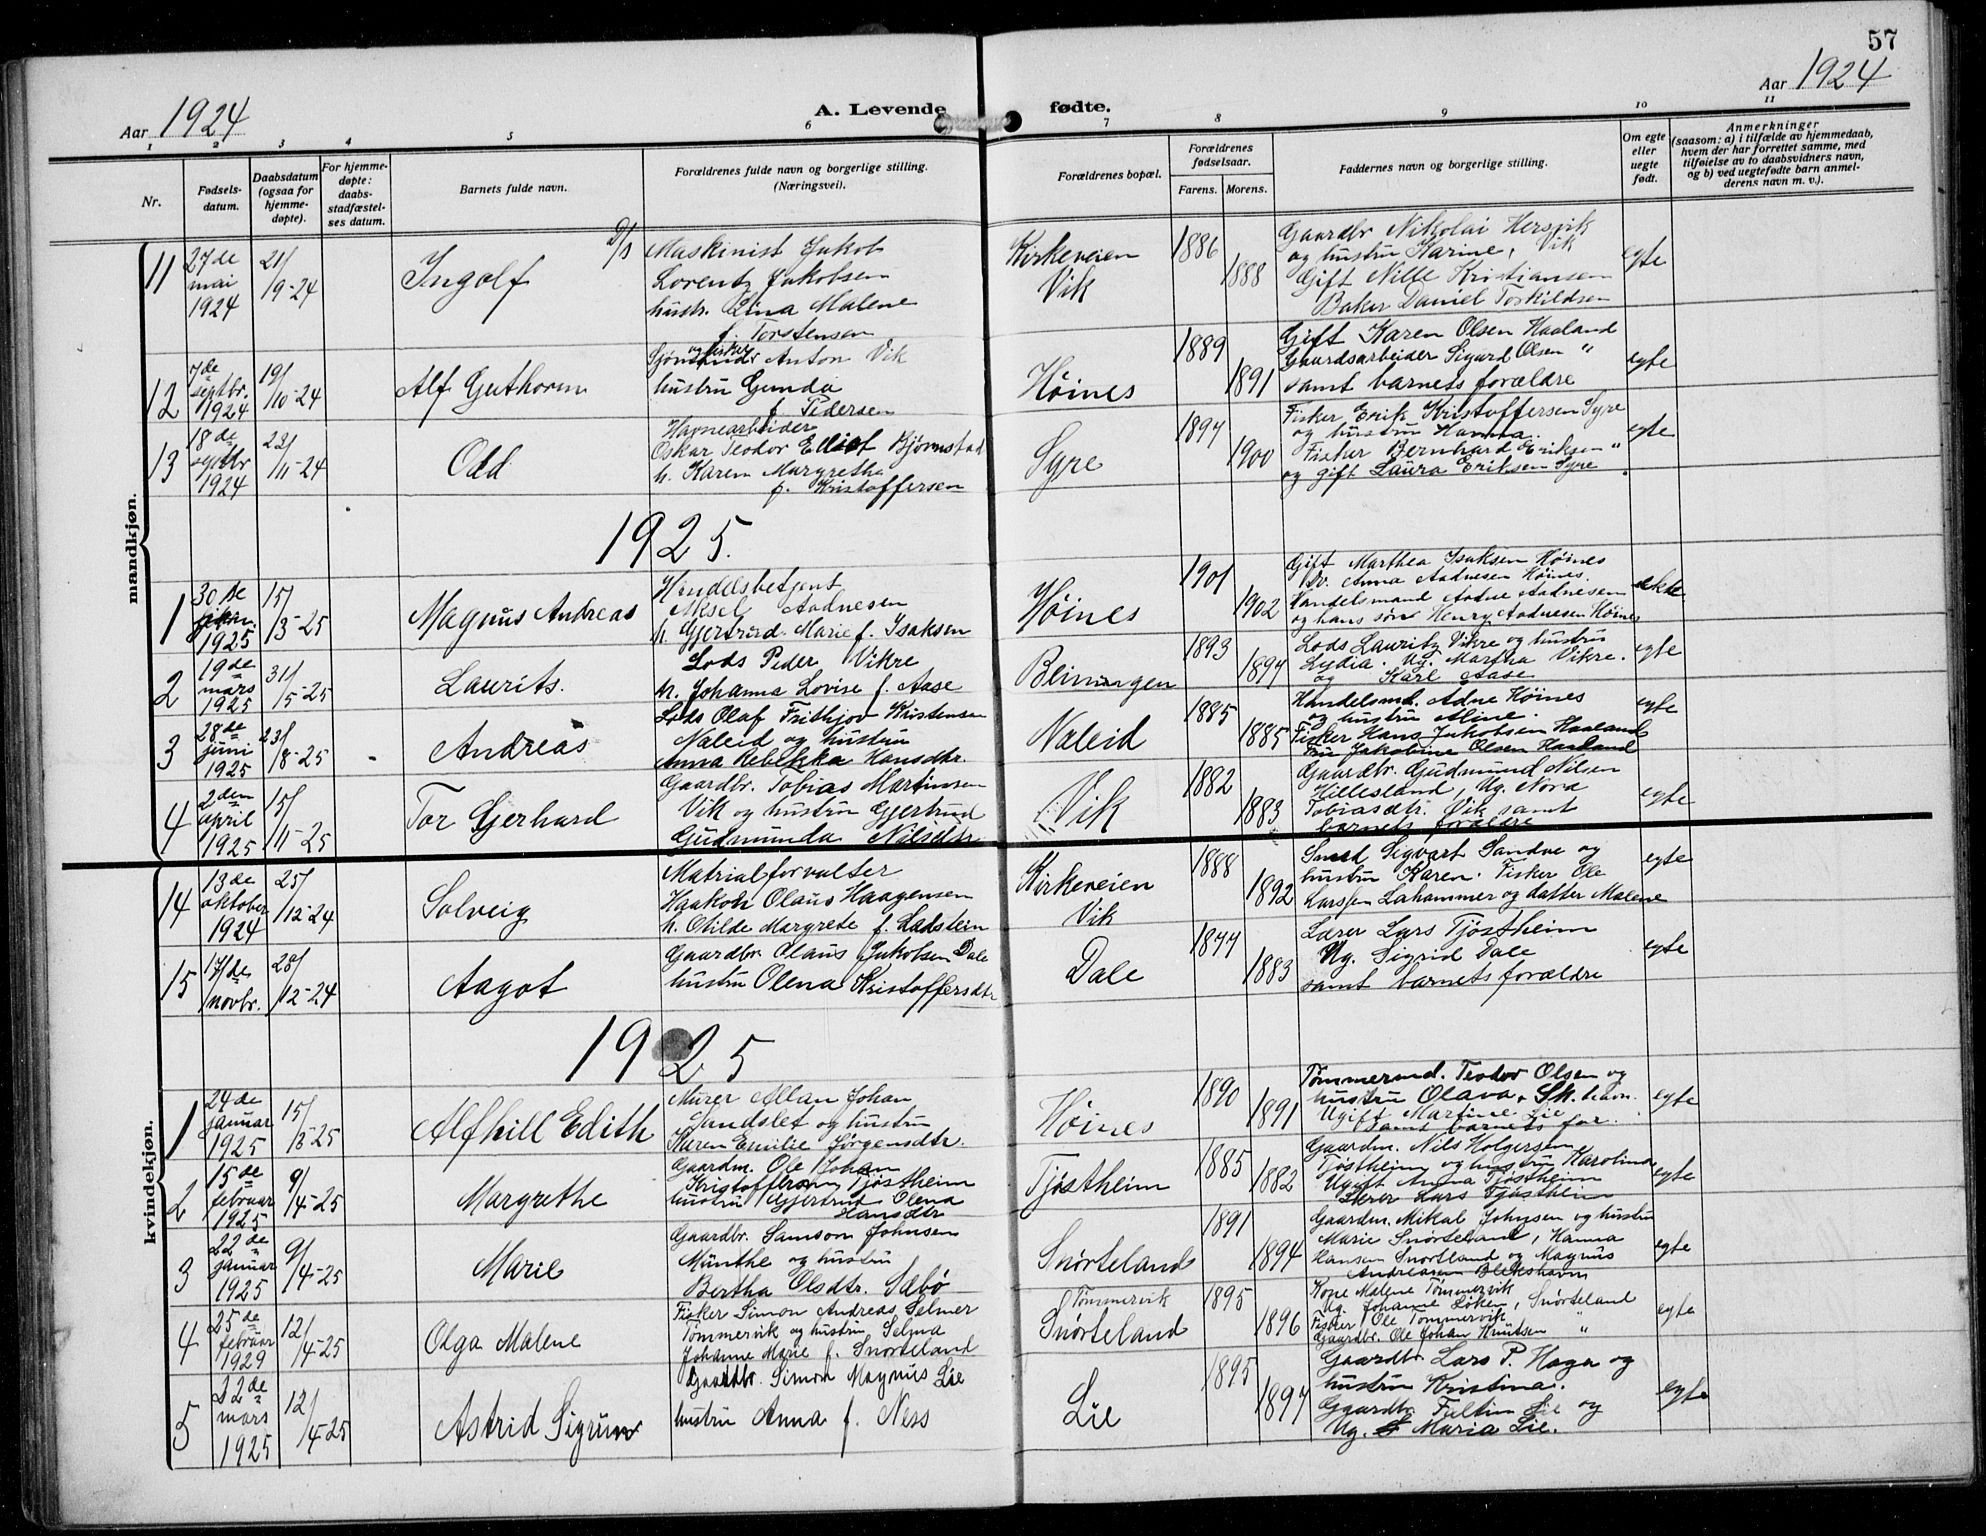 57
Aar 1924
A. Levende fødte.
Aar 1924
1 2 3 4 5 6 7 8 9 10 11
Nr.
Fødsels-
datum.
Daabsdatum
(ogsaa for
hjemme-
døpte).
For hjemme-
døpte:
daabs-
stadfæstel-
ses datum.
Barnets fulde navn.
Forældrenes fulde navn og borgerlige stilling.
(Næringsvei).
Forældrenes bopæl.
Forældrenes
fødselsaar.
Farens. Morens.
Faddernes navn og borgerlige stilling.
Om egte
eller
uegte
født.
Anmerkninger
(saasom: a) i tilfælde av hjemmedaab,
hvem der har forrettet samme, med
tilføielse av to daabsvidners navn,
og b) ved uegtefødte barn anmel-
derens navn m. v.).
mandkjøn.
11
27de
mai
1924
21/
9-24
Ingolf
D/s
Maskinist Jakob
Lorentz Jakobsen
hustr. Lina Malene
f. Torstensen
Kirkeveien
Vik
1886
1888
Gaardbr Nikolai Hersvik
og hustru Karine, Vik
Gift Nille Kristiansen
Baker Daniel Torkildsen
egte
12
7de
septbr.
1924
19/
10-24
Alf Guthorm
og fisker
Anton Vik
hustru Gunda
f. Pedersen
Høines
1889
1891
Gift Karen Olsen Haaland
Gaardsarbeider Sigurd Olsen "
samt barnets forældre
egte
13
18de
septbr
1924
23/
11-24
Odd
Havnearbeider
Oskar Teodor Elliot Bjørnstad
h. Karen Margretha
f. Kristoffersen
Syre
1897
1900
Fisker Erik Kristoffersen Syre
og hustru Hanna.
Fisker Bernhard Eriksen "
og gift Laura Eriksen Syre
egte
1925.
1
30de
1925
15/
3-25
Magnus Andreas
Handelsbetjent
Aksel Aadnesen
h. Gjertrud Marie f. Isaksen
Høines
1901
1902
Gift Marthea Isaksen Høines
Anna Aadnesen Høines.
Handelsmand Aadne Aadnesen
og hans søn Henry Aadnesen Høines
ekte
2
19de
mars
1925
31/
5-25
Laurits.
Lods Peder Vikre
h. Johanna Lovise f. Aase
1893
1897
Lods Lauritz Vikre og hustru
Lydia. Ug. Martha Vikre.
og Karl Aase
egte
3
28de
juni
1925
23/
8-25
Andreas
Lods Olaf Frithjov Kristensen
Naleid og hustru
Anna Rebekka Hansdtr.
Naleid
1885
1885
Handelsmd. Adne Høines
og hustru Aline.
Fisker Hans Jakobsen Haaland
Fru Jakobine Olsen Haaland
egte
4
2den
april
1925
15/
11-25
Tor Gerhard
Gaardbr. Tobias Martinsen
Vik og hustru Gjertrud
Gudmunda Nilsdtr
Vik
1882
1883
Gaardbr. Gudmund Nilsen
Hillesland, Ug. Nora
Tobiasdtr. Vik samt
barnets forældre
egte
kvindekjøn.
14
13de
oktober
1924
25/
12-24
Solveig
Matrialforvalter
Haakon Olaus Haagensen
h. Otilde Margrete f. Ladstein
Kirkeveien
Vik
1888
1892
Smed Sigvart Sandve og
hustru Karen. Fisker Ole
Larssen Lahammer og datter Malene
egte
15
17de
novbr.
28/
12-24
Aagot
Gaardbr. Olaus Jakobsen Dale
hustru Olena Kristoffersdtr
Dale
1877
1883
Lærer Lars Tjøstheim
Ug. Sigrid Dale
samt barnets forældre
egte
1925
1
24de
januar
1925
15/
3-25
Alfhill Edith
Murer Allan Johan
Sandslet og hustru
Karen Emilie Jørgensdtr.
Høines
1890
1891
Tømmermd. Teodor Olsen og
hustru Olava, Sk.havn.
Ugift Martine Lie
samt barnets for.
egte
2
15de
februar
1925
9/
4-25
Margrethe
Gaardm. Ole Johan
Kristoffersen Tjøstheim
hustru Gjertrud Olena
Hansdtr
Tjøstheim
1885
1882
Gaardm. Nils Holgersen
Tjøstheim og hustru Karolina
Ugift Anna Tjøstheim
Lærer Lars Tjøstheim
egte
3
22de
januar
1925
9/
4-25
Marie
Gaardbr. Samson Johnsen
Munthe og hustru
Bertha Olsdtr. Sæbø
Snørteland
1891
1894
Gaardm. Mikal Johnsen og hustru
Marie Snørteland, Hanna
Hansen Snørtland og Magnus
Andreasen Blikshavn
egte
4
25de
februar
1929
12/
4-25
Olga Malene
Fisker Simon Andreas Selmer
Tømmervik og hustru Selma
Johanne Marie f. Snørteland
Tømmervik
Snørteland
1895
1896
Kone Malene Tømmervik
Ug. Johanne Løken, Snørteland
Fisker Ole Tømmervik
Gaardbr. Ole Johan Knutsen "
egte
5
22de
mars
1925
12/
4-25
Astrid Sigrun
Gaardbr. Simon Magnus Lie
hustru Anna f. Ness
Lie
1895
1897
Gaardbr. Lars P. Haga og
hustru Kristina.
Gaardbr. Lie og
Ug. Maria Lie.
egte